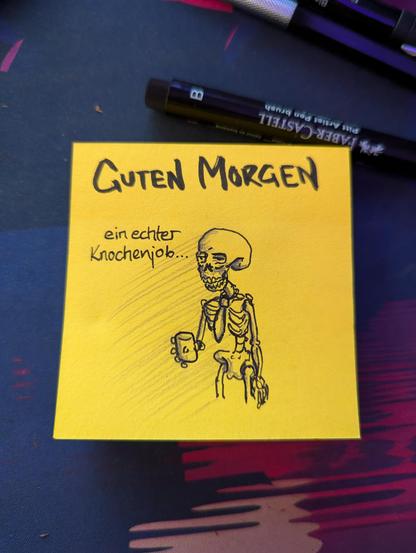 GUTEN MORGEN
ein echter
Knochenjob...
B
FABER-CASTELL
Pitt Artist Pen brush